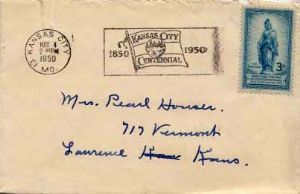 KANSAS CITY
MAY 4
1950
MO.
1850 KANSAS CITY 1950
CENTENNIAL
3¢
Mrs. Pearl Houser.
717 Vermont
Laurence Kans.